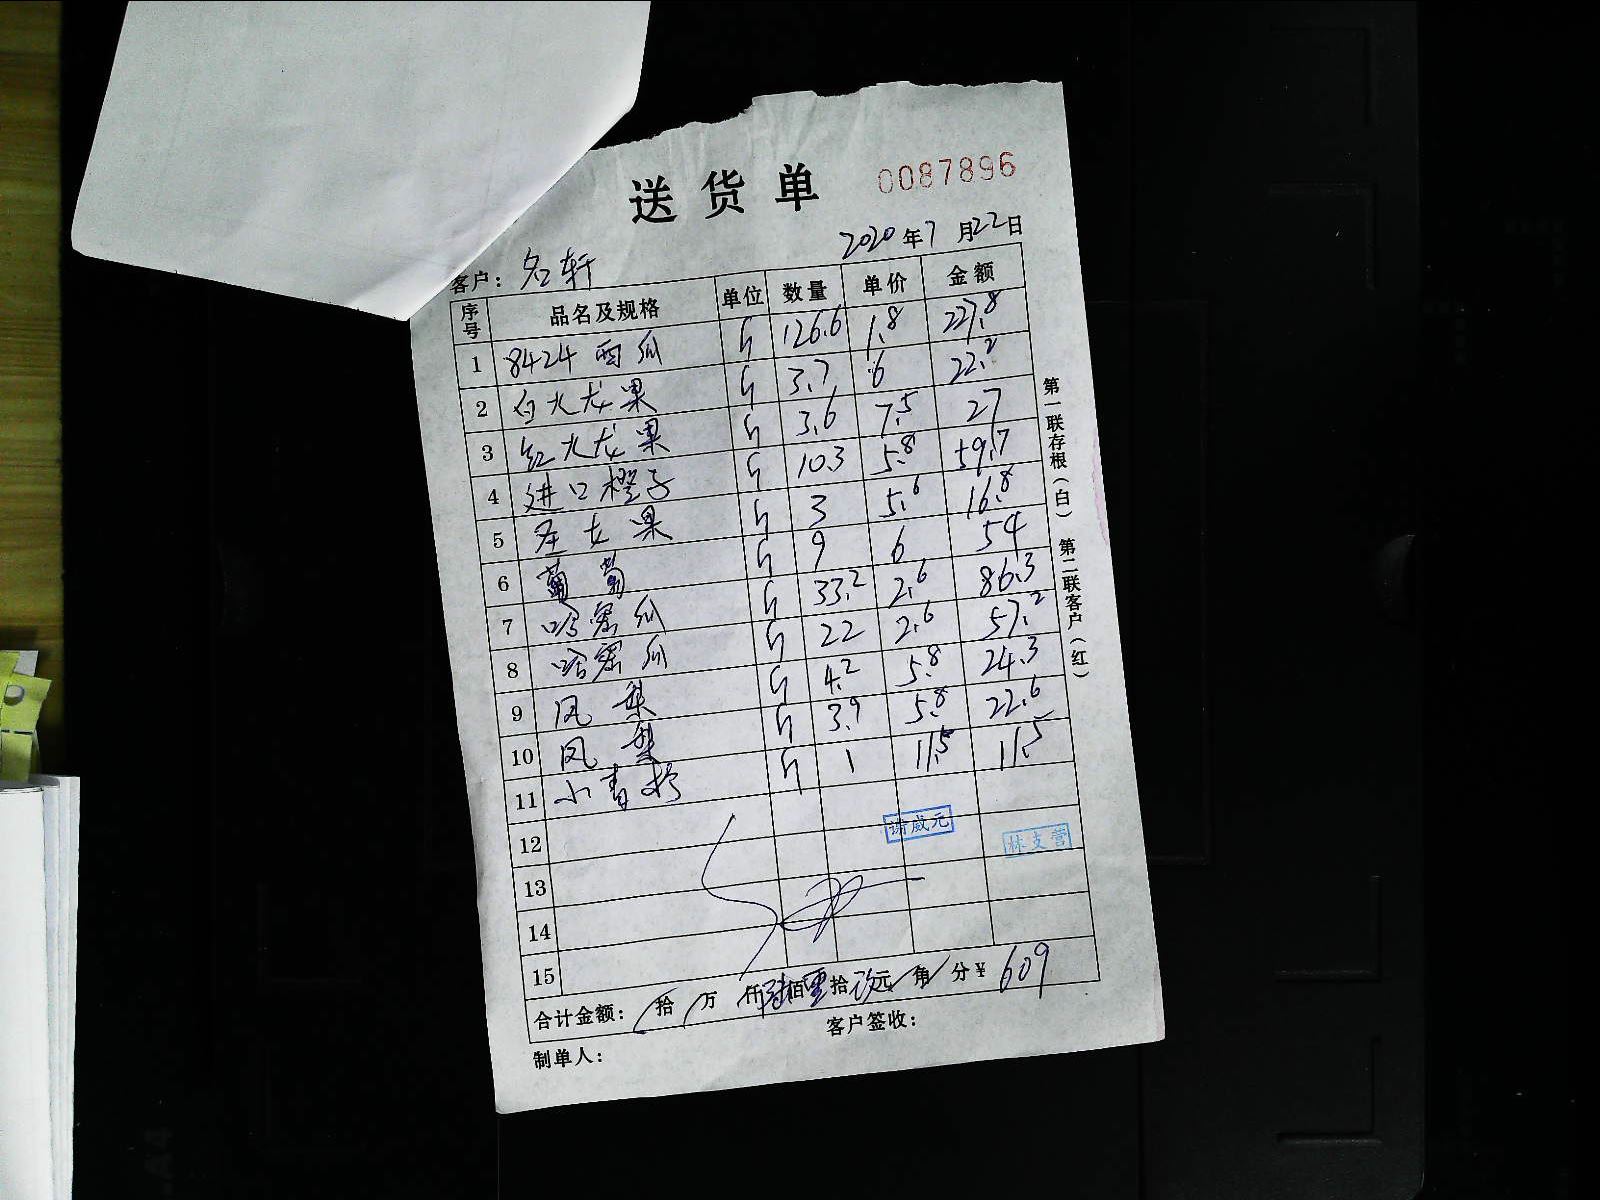 送货单 0087896
2020年7月22日
客户：名轩
序号 品名及规格 单位 数量 单价 金额
1 8424西瓜 斤 126.6 1.8 227.8
2 白火龙果 斤 3.7 6 22.2
3 红火龙果 斤 3.6 7.5 27
4 进口橙子 斤 10.3 5.8 59.7
5 圣女果 斤 3 5.6 16.8
6 葡萄 斤 9 6 54
7 哈密瓜 斤 33.2 2.6 86.3
8 哈密瓜 斤 22 2.6 57.2
9 凤梨 斤 4.2 5.8 24.3
10 凤梨 斤 3.9 5.8 22.6
11 小青柠 斤 1 11.5 11.5
12 谢威元
林支营
13
14
15
合计金额： 拾 万 仟陆佰零拾玖元 角 分¥ 609
制单人： 客户签收：
第一联存根（白） 第二联客户（红）